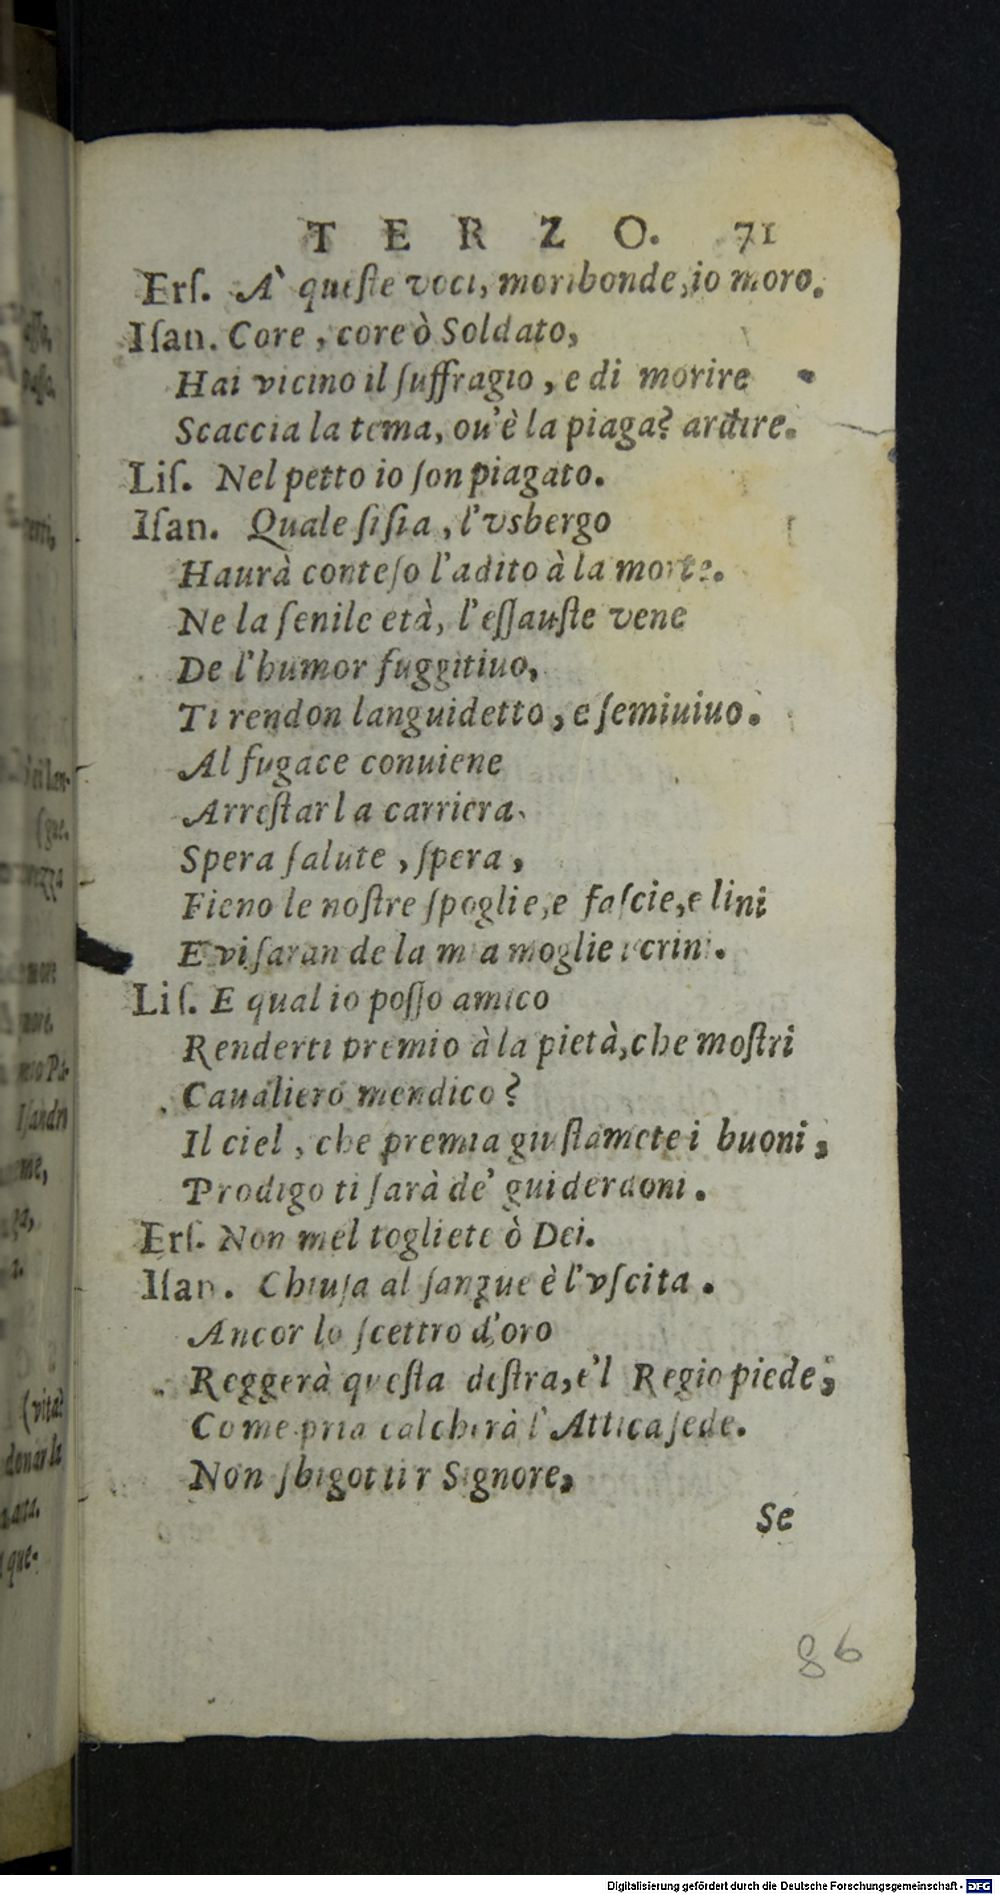 TERZO. 71
Erſ. A' queſte voci, moribonde, io moro.
Iſan. Core, core ò Soldato,
Hai vicino il ſuffragio, e di morire
Scaccia la tema, ou'è la piaga? ardire.
Liſ. Nel petto io ſon piagato.
Iſan. Quale ſi ſia, l'vsbergo
Haurà conteſo l'adito à la morte.
Ne la ſenile età, l'eſſauſte vene
De l'humor fuggitiuo,
Ti rendon languidetto, e ſemiuiuo.
Al fugace conuiene
Arreſtar la carriera.
Spera ſalute, ſpera,
Fieno le noſtre ſpoglie, e faſcie, e lini
E vi ſaran de la mia moglie i crini.
Liſ. E qual io poſſo amico
Renderti premio à la pietà, che moſtri
Caualiero mendico?
Il ciel, che premia giuſtamẽte i buoni,
Prodigo ti ſarà de' guiderdoni.
Erſ. Non mel togliete ò Dei.
Iſan. Chiuſa al ſangue è l'vſcita.
Ancor lo ſcettro d'oro
Reggerà queſta deſtra, e'l Regio piede,
Come pria calcherà l'Attica ſede.
Non ſbigottir Signore,
Se
86
Digitalisierung gefördert durch die Deutsche Forschungsgemeinschaft - DFG